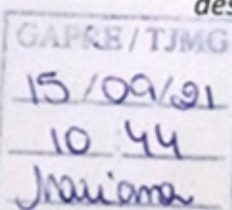 des
GAPRE/TJMG
15/09/21
10 44
Mariana